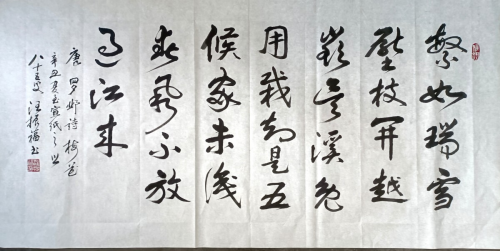 繁如瑞雪
壓枝开越
嶺吴溪免
用栽却是五
侯家未识
春风不放
过江来
唐罗邺诗梅花
辛丑夏玉宣纸之上
八十五叟汪振福书